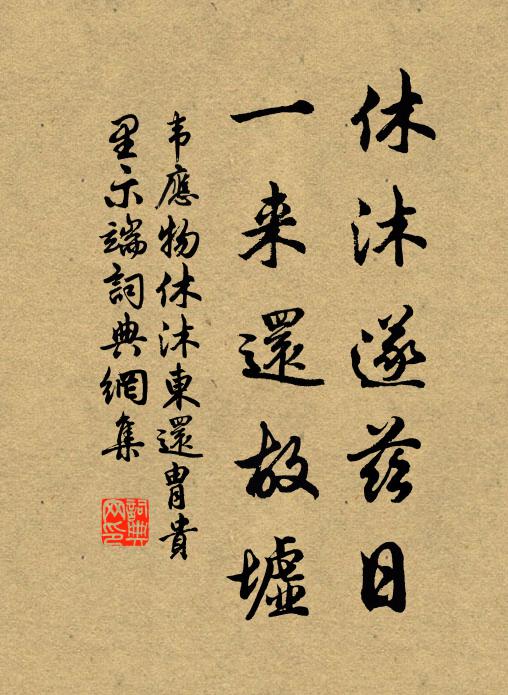 休沐遂兹日
一来還故墟
韦應物休沐東還胄貴
里示端詞典網集
詞典
网印